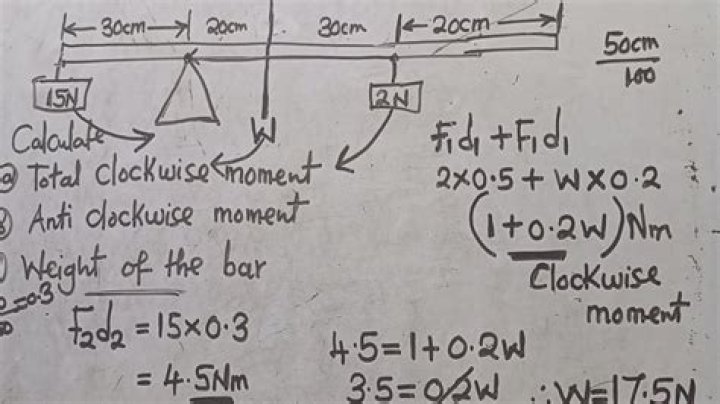 30cm 20cm 30cm 20cm
50cm
100
15N
2N
W
Calculate
a) Total clockwise moment
Anti clockwise moment
Weight of the bar
=0.3
F₂d₂ = 15×0.3
= 4.5Nm
F₁d₁ + F₁d₁
2×0.5 + W×0.2
(1+0.2W)Nm
Clockwise
moment
4.5=1+0.2W
3.5=0.2W ∴W=17.5N